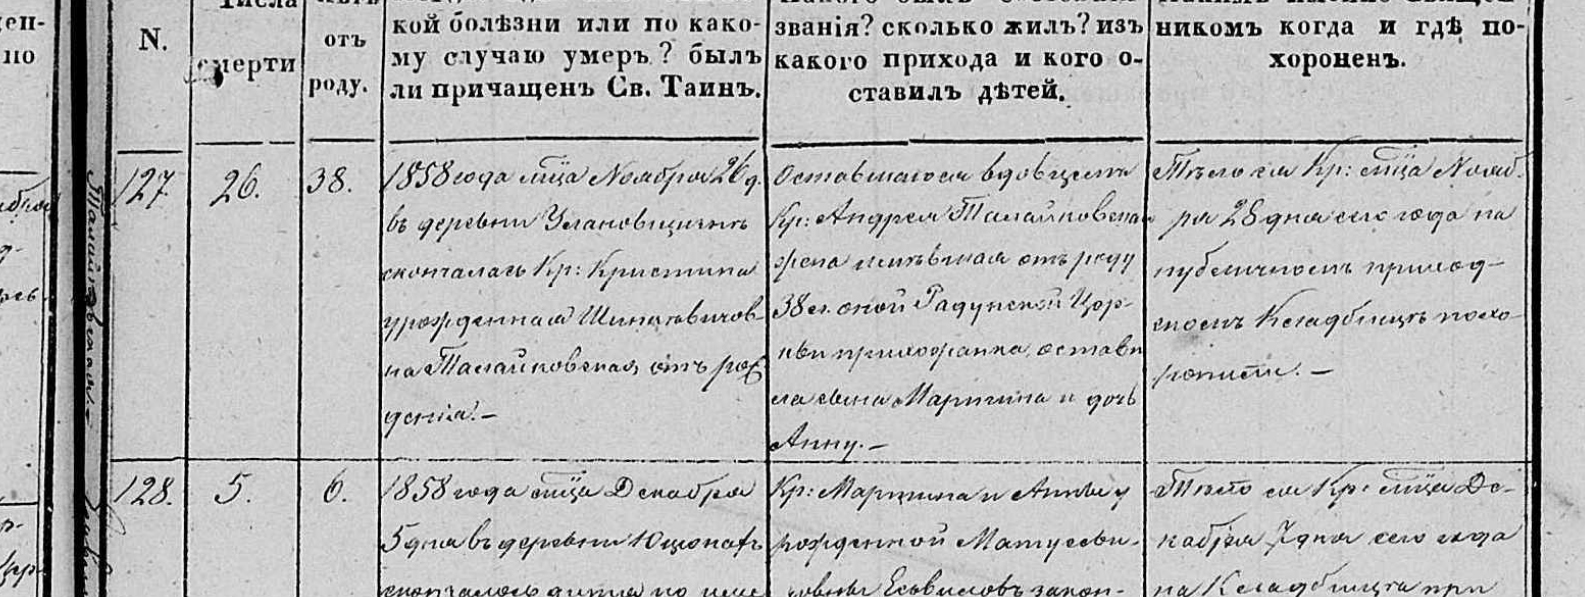 N.
Числа
смерти
отъ
роду.
кой болѣзни или по како-
му случаю умеръ? былъ
ли причащенъ Св. Таинъ.
званія? сколько жилъ? изъ
какого прихода и кого о-
ставилъ дѣтей.
никомъ когда и гдѣ по-
хороненъ.
127.
26.
38.
1858 года мца Ноября 26 д.
въ деревни
скончалась Кр: Кристина
урожденная
на Талайковская, отъ рож
денія.-
Оставшагося вдовцемъ
Кр: Андрея Талайковска
жена имѣвшая отъ роду
38 л. оной Радунской Цер-
кви прихожанка, остави
ла сына Мартина и дочь
Анну.-
Тѣло ея Кр: мца Нояб.
ря 28 дня сего года на
публичномъ приход-
скомъ Кладбищѣ похо-
ронили.-
128.
5.
6.
1858 года мца Декабря
5 дня въ деревни
скончалось дитя по име
Кр: Мартина и Анны у
рожденной Матусеви-
закон-
Тѣло ея Кр: мца Де-
кабря 7 дня сего года
на Кладбищѣ при